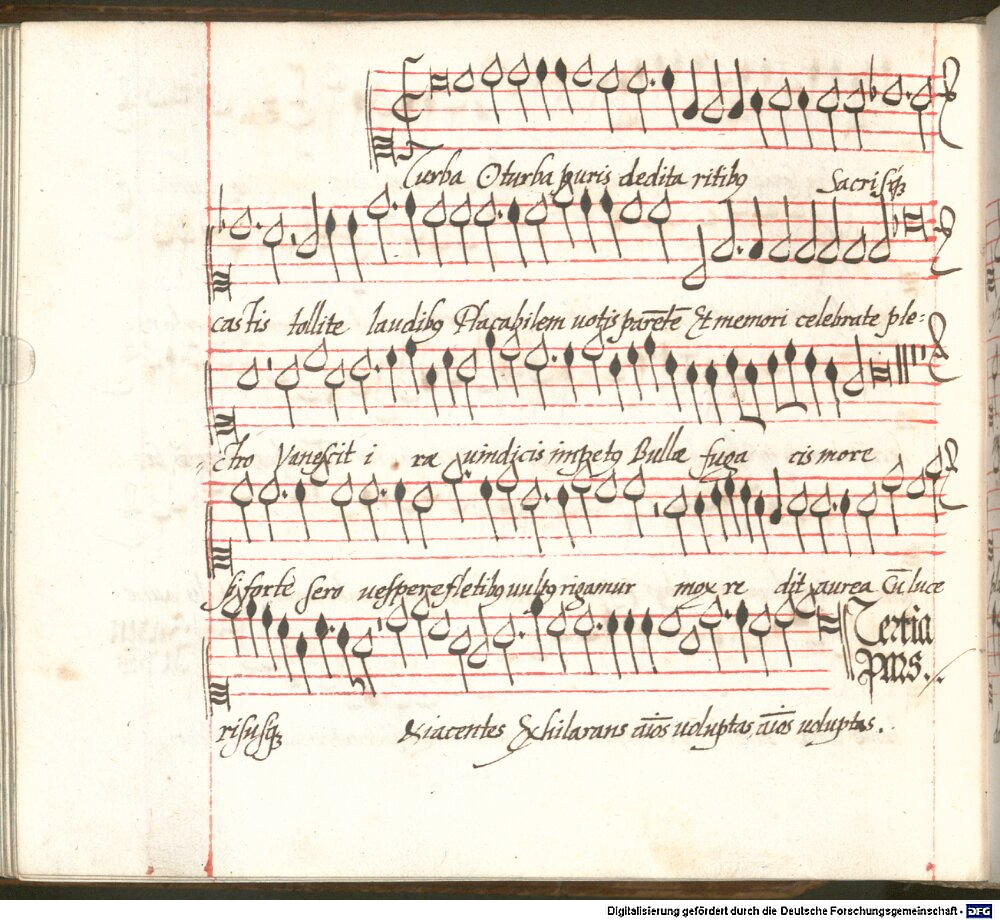 Turba O turba puris dedita ritibꝰ Sacrisqꝫ
castis tollite laudibꝰ Placabilem uotis parētē Et memori celebrate ple=
ctro Vanescit i ra uindicis impetꝰ Bullæ fuga cis more
si forte sero uespere fletibꝰ uultꝰ rigamur mox re dit aurea Cū luce
risusqꝫ
Tertia
pars.
&iacentes Exhilarans aīos uoluptas aīos uoluptas.
Digitalisierung gefördert durch die Deutsche Forschungsgemeinschaft - DFG